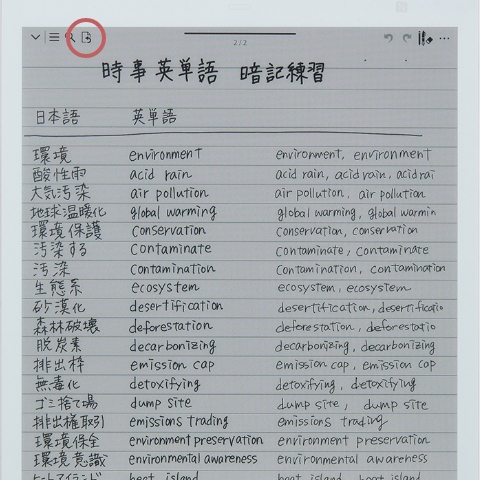 2/2
時事英単語 暗記練習
日本語 英単語
環境 environment environment, environment
酸性雨 acid rain acid rain, acid rain, acid rai
大気汚染 air pollution air pollution, air pollution
地球温暖化 global warming global warming, global warmin
環境保護 conservation conservation, conservation
汚染する contaminate contaminate, contaminate
汚染 contamination contamination, contamination
生態系 ecosystem ecosystem, ecosystem
砂漠化 desertification desertification, desertificatio
森林破壊 deforestation deforestation, deforestatio
脱炭素 decarbonizing decarbonizing, decarbonizing
排出枠 emission cap emission cap, emission cap
無毒化 detoxifying detoxifying, detoxifying
ゴミ捨て場 dump site dump site, dump site
排出権取引 emissions trading emissions trading
環境保全 environment preservation environment preservation
環境意識 environmental awareness environmental awareness
ヒートアイランド heat island heat island, heat island